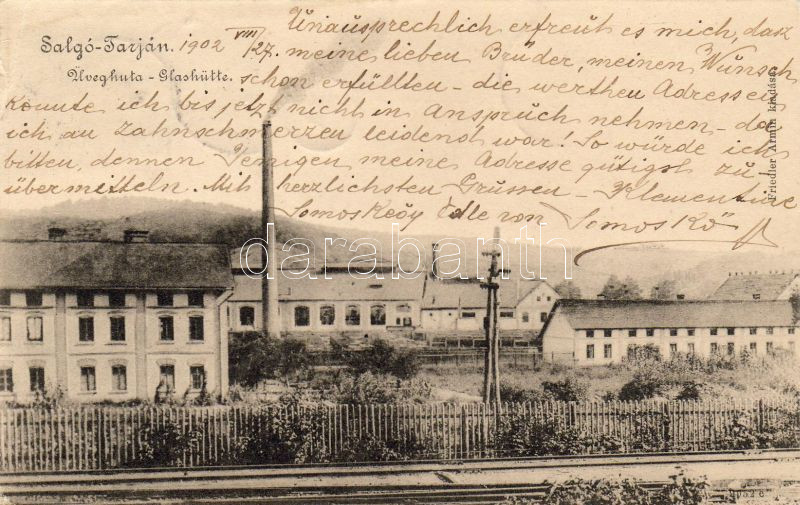 Salgó-Tarján. 1902 VIII/27.
Üveghuta - Glashütte.
Unaussprechlich erfreut es mich, dasz
meine lieben Brüder, meinen Wunsch
schon erfüllten - die werthen Adressen
konnte ich bis jetzt nicht in Anspruch nehmen - da
ich an Zahnschmerzen leidend war! So würde ich
bitten, dennen Jenigen meine Adresse gütigst zu
übermitteln. Mit herzlichsten Grüssen - Klementine
Somoskeöy Edle von Somoskő
Friedler Ármin kiadása.
darabanth